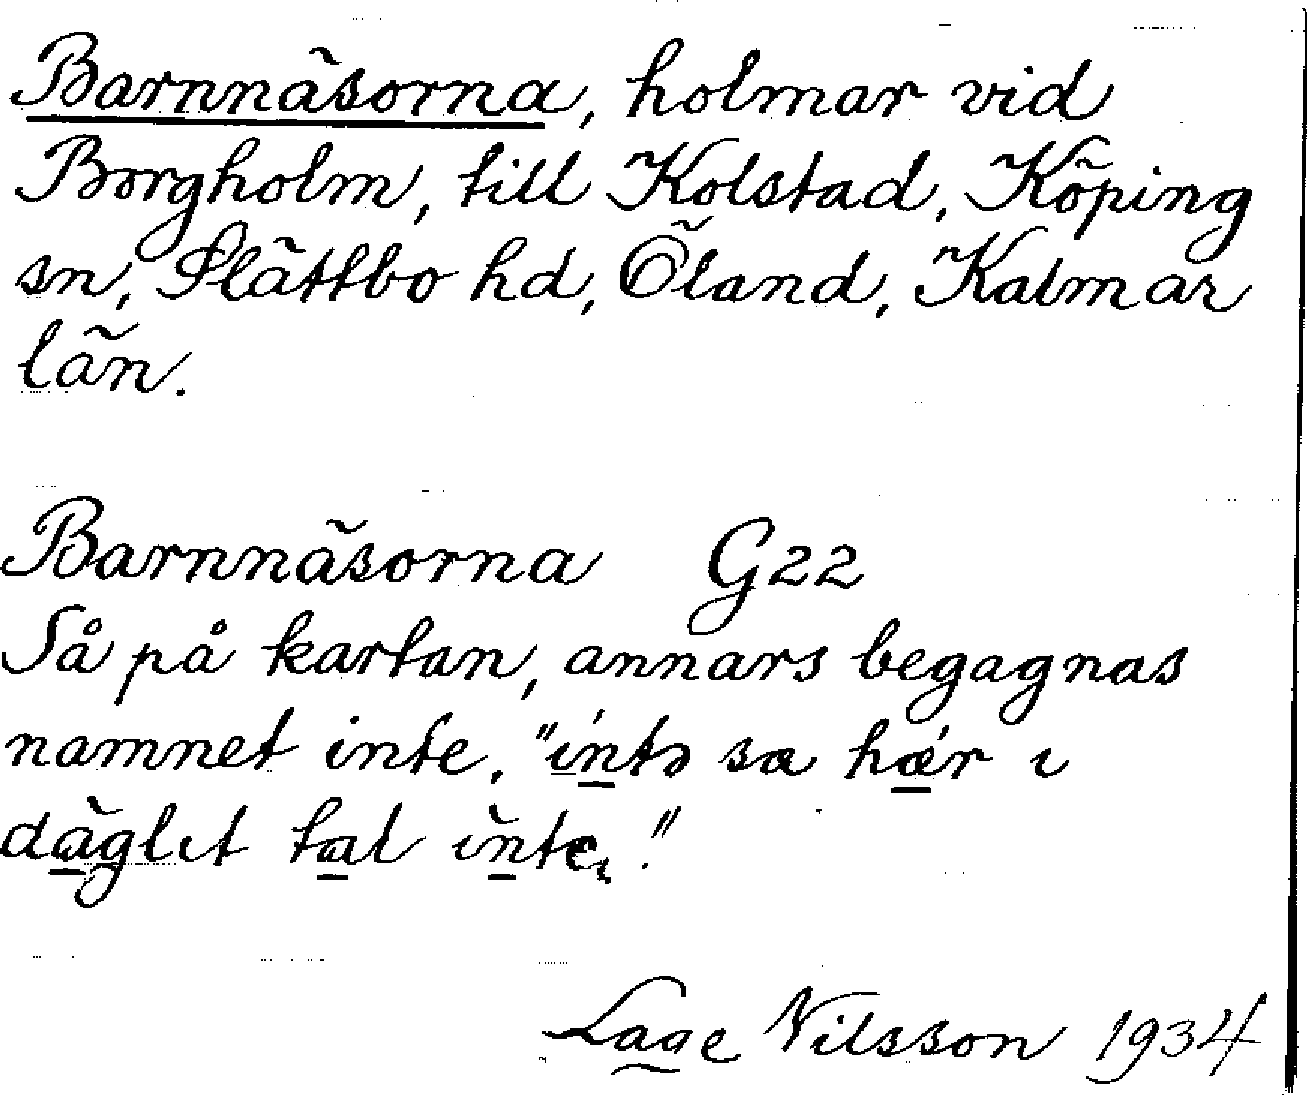 Barnnäsorna, holmar vid
Borgholm, till Kolstad, Köping
sn, Slättbo hd, Öland, Kalmar
län.
Barnnäsorna G22
Så på kartan, annars begagnas
namnet inte. "intə sæ hær ı
däglıt tal inte."
Lage Nilsson 1934